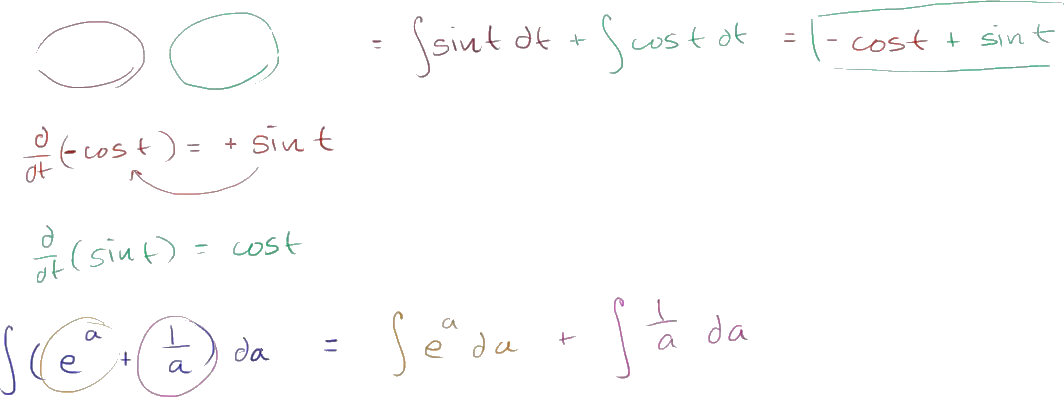 = ∫ sin t dt + ∫ cos t dt = - cos t + sin t
d/dt (- cos t) = + sin t
d/dt (sin t) = cos t
∫ (e^a + 1/a) da = ∫ e^a da + ∫ 1/a da